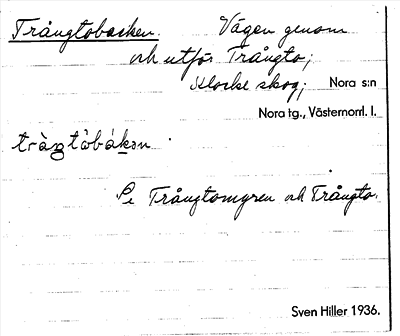 Trångtobacken. Vägen genom
och utför Trångto;
Klocke skog; Nora s:n
Nora tg., Västernorrl. l.
tràŋtòbákən
Se Trångtomyren och Trångto.
Sven Hiller 1936.